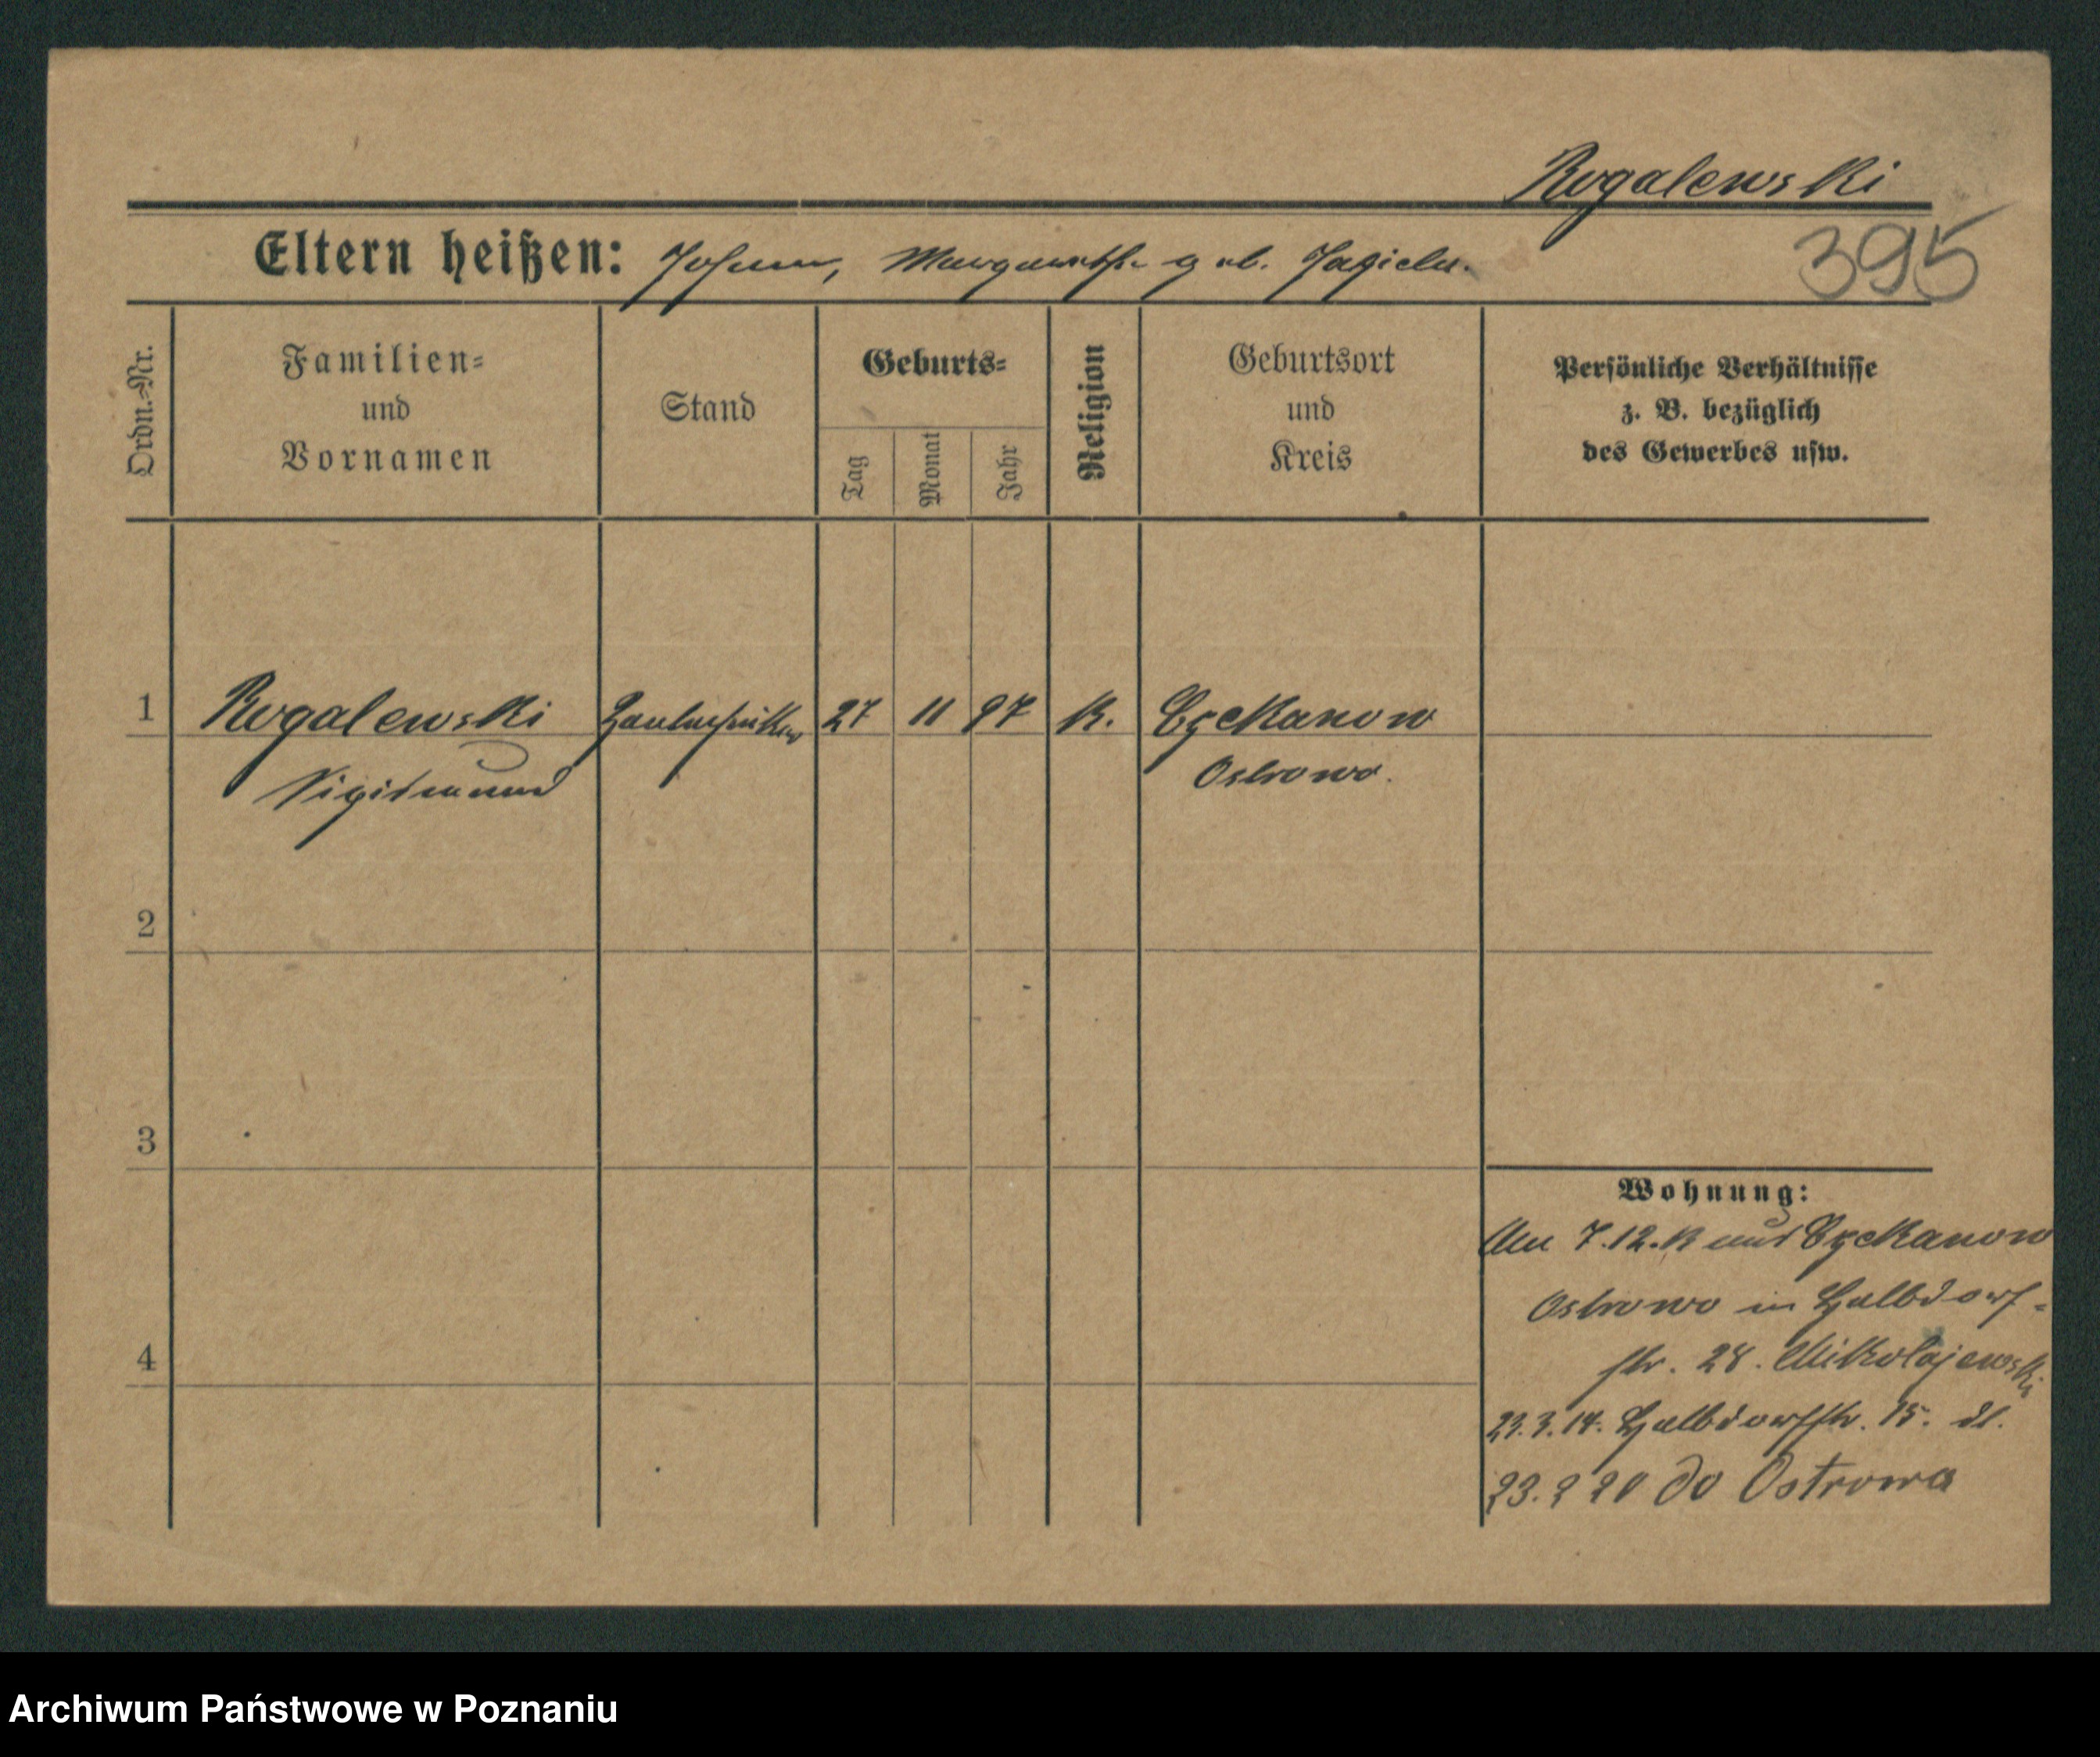 Rogalewski
395
Eltern heißen: Johann, Margarethe geb. Jagiela.
Ordn.-Nr.
Familien=
und
Vornamen
Stand
Geburts=
Tag
Monat
Jahr
Religion
Geburtsort
und
Kreis
Persönliche Verhältnisse
z. B. bezüglich
des Gewerbes usw.
1 Rogalewski 27 11 97 K. Czekanow
Sigismund Ostrowo.
2
3
4
Wohnung:
Am 7.12. aus Czekanow
Ostrowo in Halbdorf-
str. 28. Mikolajewski
23.3.14. Halbdorfstr. 15.
23. do Ostrowa
Archiwum Państwowe w Poznaniu